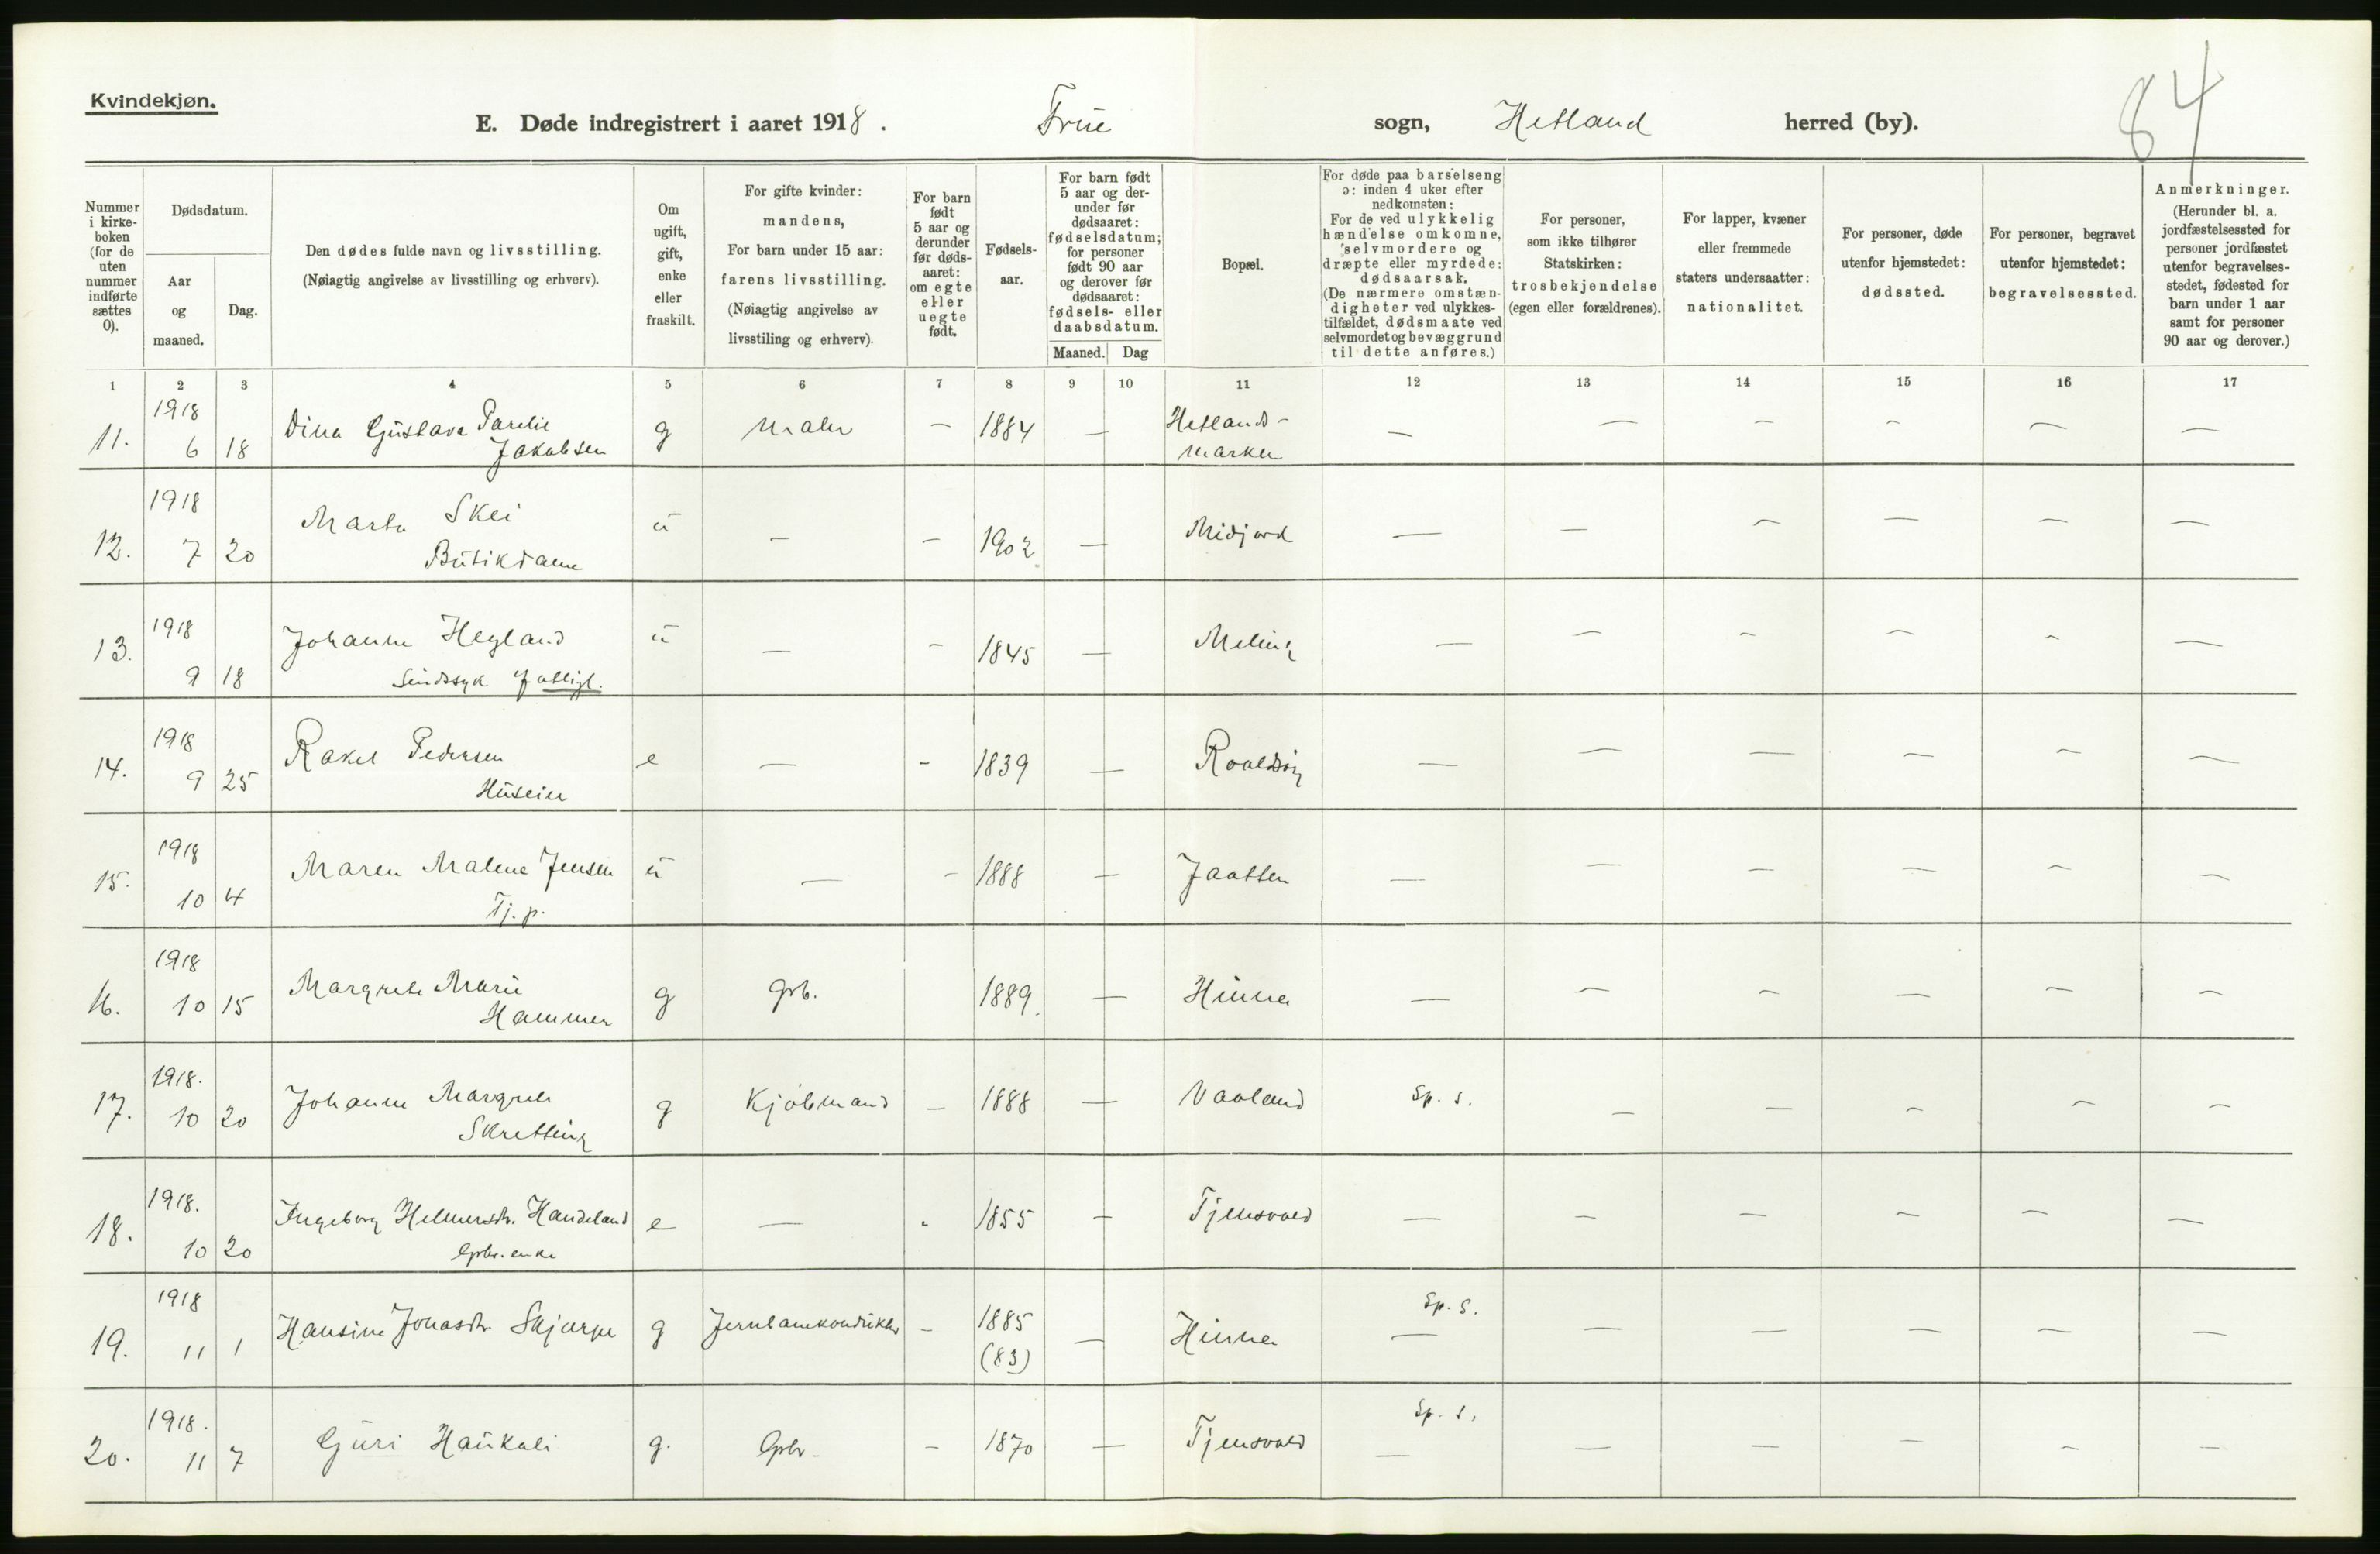 Kvindekjøn.
84
E. Døde indregistrert i aaret 1918. Frue sogn, Hetland herred (by).
Nummer i kirke-boken (for de uten nummer indførte sættes 0).
Dødsdatum.
Aar og maaned.
Dag.
Den dødes fulde navn og livsstilling.
(Nøiagtig angivelse av livsstilling og erhverv).
Om ugift, gift, enke eller fraskilt.
For gifte kvinder: mandens,
For barn under 15 aar: farens livsstilling.
(Nøiagtig angivelse av livsstiling og erhverv).
For barn født 5 aar og derunder før døds-aaret: om egte eller uegte født.
Fødsels-aar.
For barn født 5 aar og der-under før dødsaaret: fødselsdatum; for personer født 90 aar og derover før dødsaaret: fødsels- eller daabsdatum.
Maaned. Dag
Bopæl.
For døde paa barselseng ɔ: inden 4 uker efter nedkomsten:
For de ved ulykkelig hændelse omkomne, selvmordere og dræpte eller myrdede: dødsaarsak.
(De nærmere omstæn-digheter ved ulykkes-tilfældet, dødsmaate ved selvmordet og bevæggrund til dette anføres.)
For personer, som ikke tilhører Statskirken: trosbekjendelse (egen eller forældrenes).
For lapper, kvæner eller fremmede staters undersaatter: nationalitet.
For personer, døde utenfor hjemstedet: dødssted.
For personer, begravet utenfor hjemstedet: begravelsessted.
Anmerkninger.
(Herunder bl. a. jordfæstelsessted for personer jordfæstet utenfor begravelses-stedet, fødested for barn under 1 aar samt for personer 90 aar og derover.)
1 2 3 4 5 6 7 8 9 10 11 12 13 14 15 16 17
11. 1918 6 18 Dina Gustava Parelie Jakobsen g Maler — 1884 — Hetlands-marken — — — — — —
12. 1918 7 20 Marta Skei Butikdame u — — 1902 — Midjord — — — — — —
13. 1918 9 18 Johanne Hegland Sindssyk fattigl. u — — 1845 — Meling — — — — — —
14. 1918 9 25 Rakel Pedersen Huseier e — — 1839 — Roaldsøy — — — — — —
15. 1918 10 4 Maren Malene Jensen Tj. p. u — — 1888 — Jaatten — — — — — —
16. 1918 10 15 Margrete Marie Hammer g Grb. 1889. — Hinna — — — — — —
17. 1918. 10 20 Johanne Margrete Skretting g Kjøbmand — 1888 — Vaaland Sp. s. — — — — —
18. 1918. 10 20 Ingeborg Helmersdtr. Handeland Grbr. enke e — - 1855 — Tjensvold — — — — — —
19. 1918 11 1 Hansine Jonasdtr. Skjørpe g Jernbanekonduktør — 1885 (83) — Hinna Sp. s. — — — — — —
20. 1918. 11 7 Guri Haukali g. Grbr. — 1870 — Tjensvold Sp. s. — — — — — —